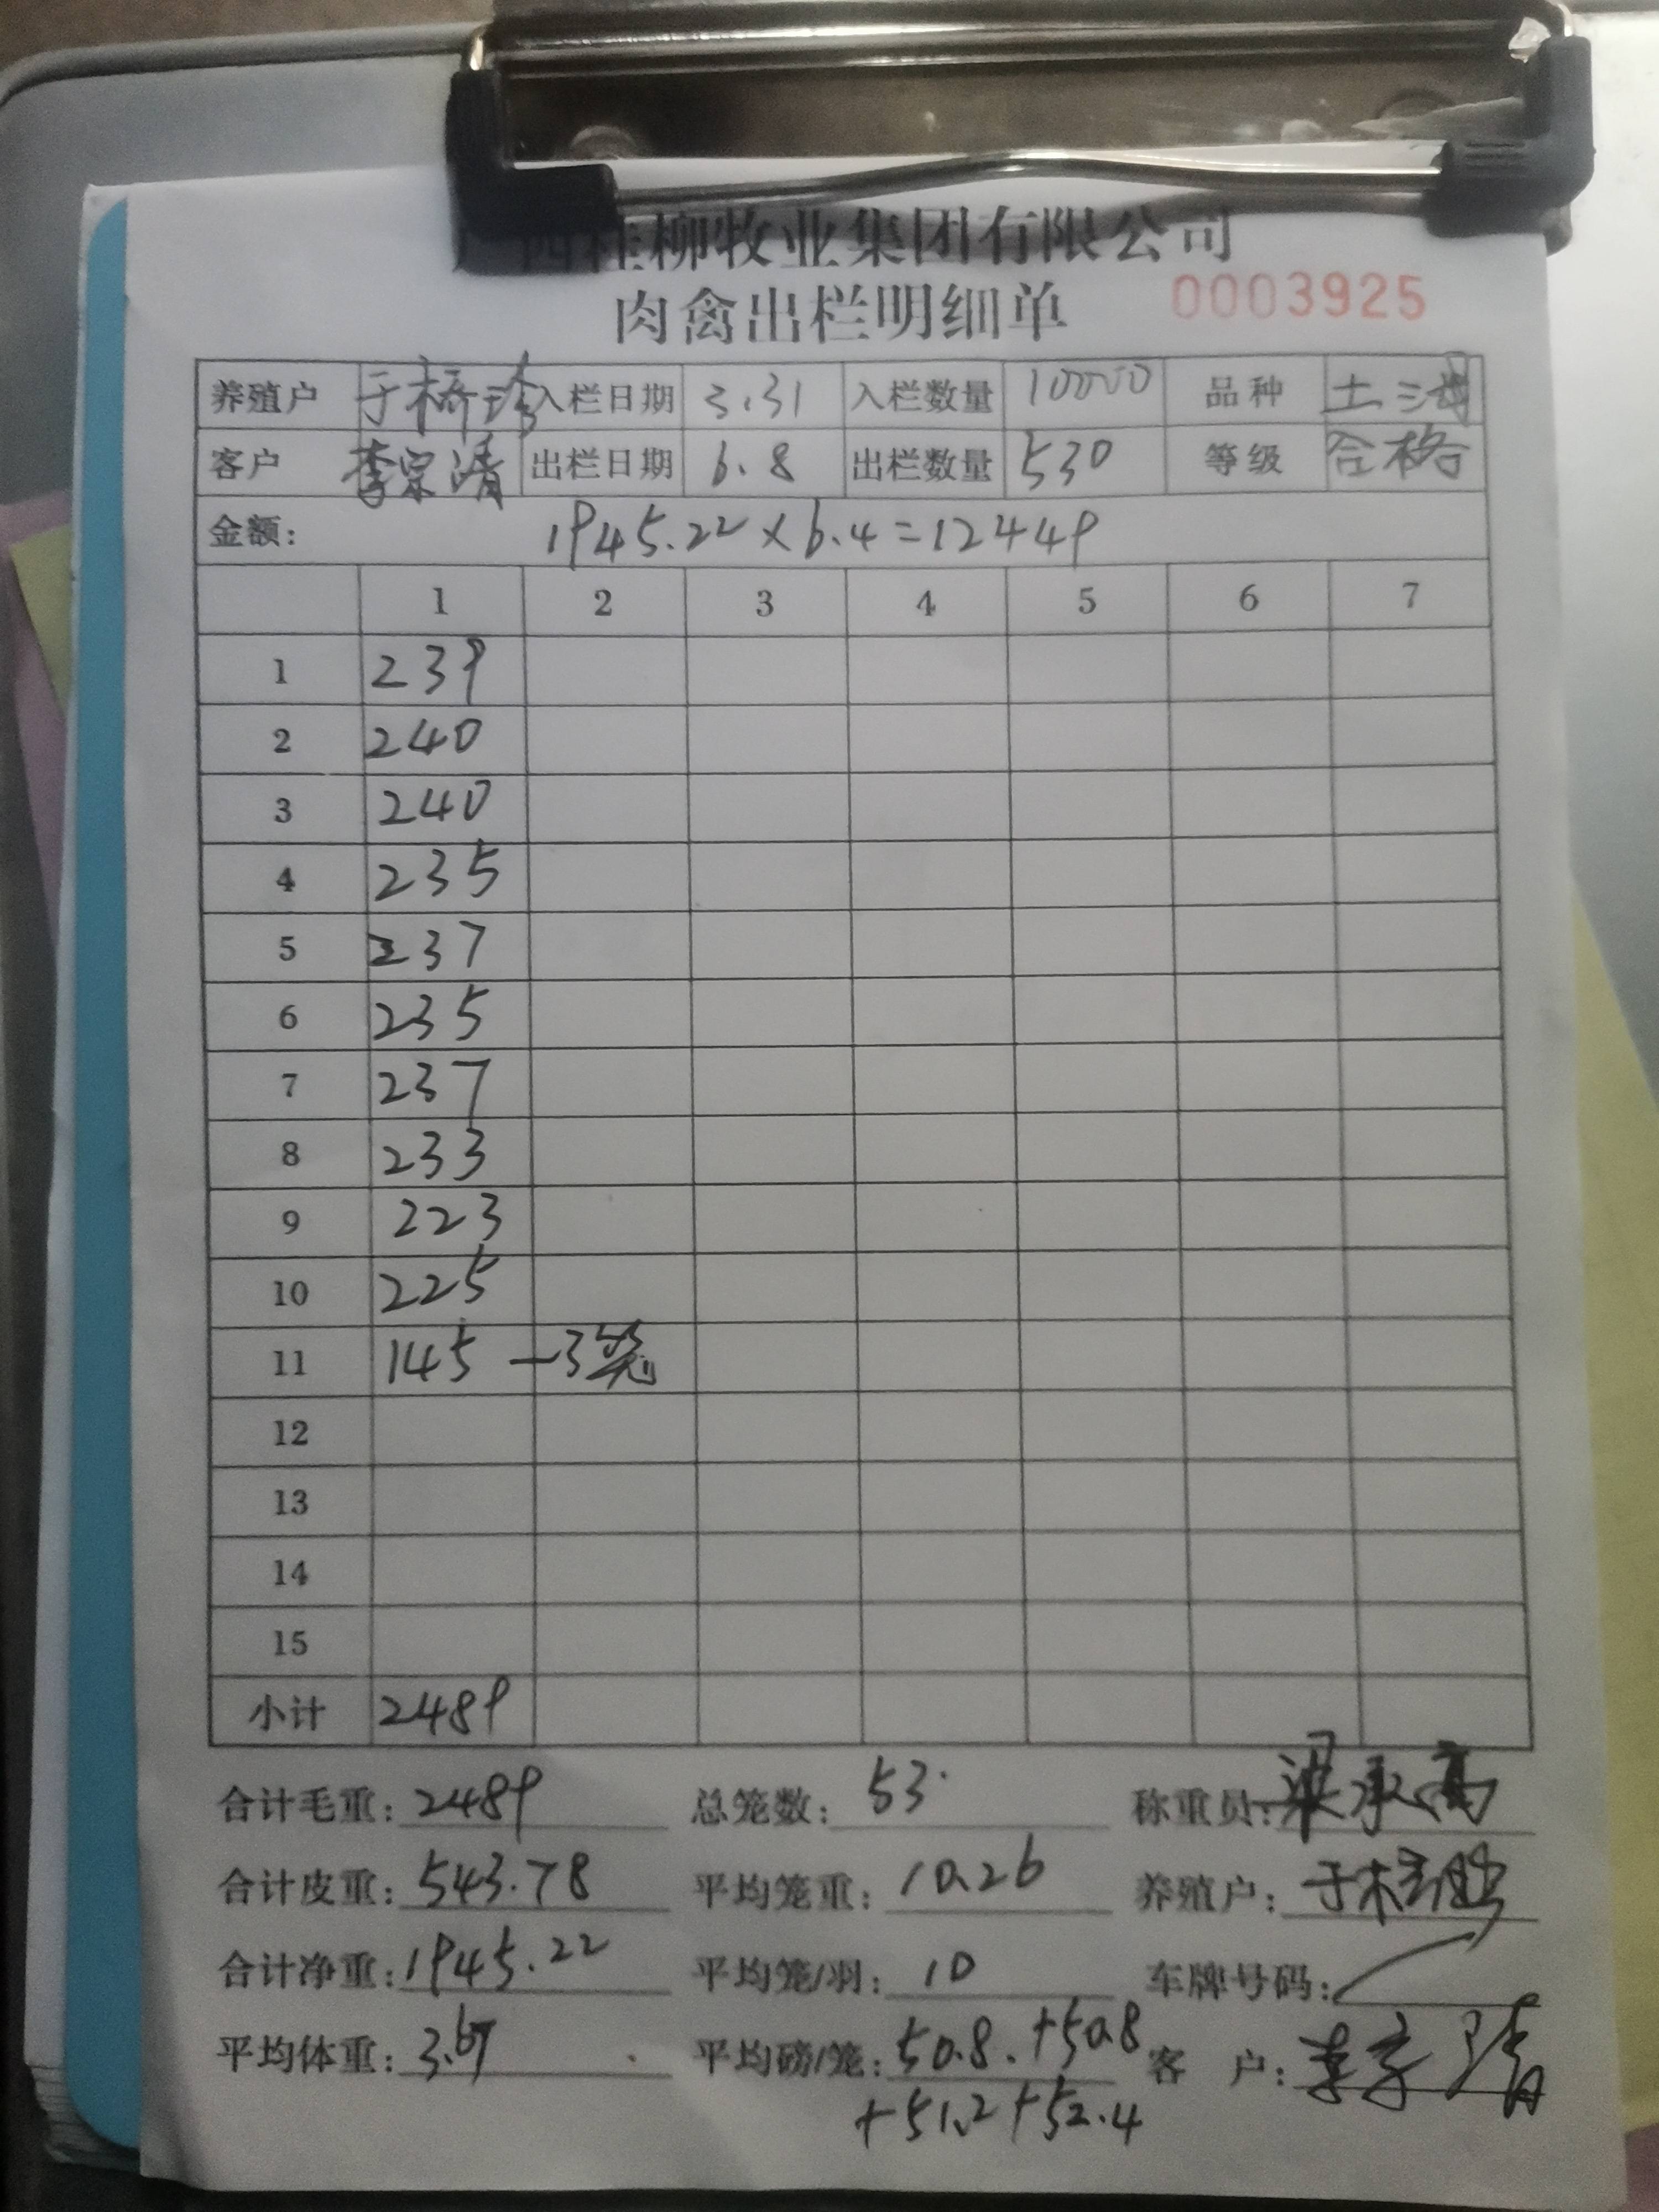 广西桂柳牧业集团有限公司
肉禽出栏明细单 0003925
养殖户 于桥珍 入栏日期 3.31 入栏数量 10000 品种 土三
客户 李宗清 出栏日期 6.8 出栏数量 530 等级 合格
金额: 1945.22×6.4=12449
1 2 3 4 5 6 7
1 239
2 240
3 240
4 235
5 237
6 235
7 237
8 233
9 223
10 225
11 145 —3笼
12
13
14
15
小计 2489
合计毛重: 2489 总笼数: 53 称重员: 梁承高
合计皮重: 543.78 平均笼重: 10.26 养殖户: 于桥
合计净重: 1945.22 平均笼/羽: 10 车牌号码:
平均体重: 3.67 平均磅/笼: 50.8+50.8 客 户: 李宗清
+51.2+52.4